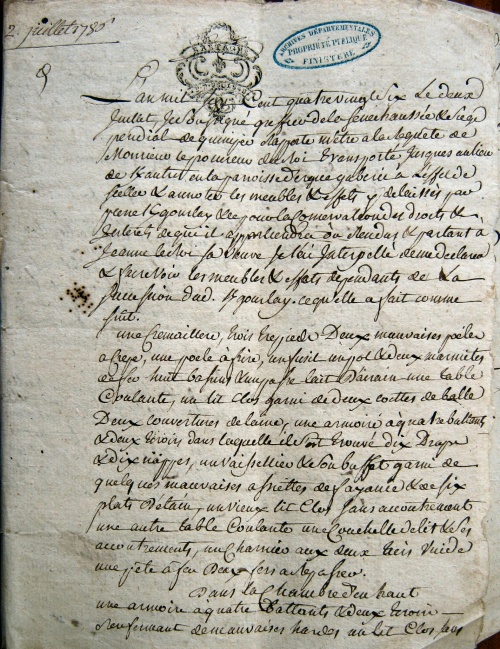 2. juillet 1786
ARCHIVES DÉPARTEMENTALES
PROPRIÉTÉ PUBLIQUE
FINISTÈRE
L'an mil Cent quatre vingt Six Le deux
Juillet, Je Soussigné greffier de la Senechaussée & Siege
presidial de quimper Raporte m'être a la Requete de
Monsieur le procureur du Roi transporté Jusques au lieu
de en la paroisse d'ergué gaberic a L'effet de
Seeller & annoter les meubles & effets y delaissés par
pierre & ce pour la Conservation des droits &
Interets de qui il appartiendra où Rendus & parlant a
Jeanne Sa veuve Je l'ai Interpellé de me declarer
& faire voir les meubles & effets dependants de La
Succession dud. ce quelle a fait comme
Suit.
une Cremaillere, trois trepieds Deux mauvaises poëles
a Crepe, une poële a frire, un fusil un pot & deux marmites
de fer huit bassins & un passe lait D'airain une table
Coulante, un lit Clos garni de deux coettes de balle
Deux couvertures de laine, une armoire à quatre battants
& deux tiroirs dans laquelle il S'est trouvé dix Draps
& dix nappes, un Vaissellier & Son buffet garni de
quelques mauvaises assiettes de fayance & de six
plats D'étain, un vieux lit Clos Sans accoutrement
une autre table Coulante une Couchette de lit & Ses
accoutrements, un Charnier aux deux tiers Vuide
une Deux fers a Repasser.
Dans la Chambre d'en haut
une armoire à quatre battants & deux tiroirs
Renfermant de mauvaises hardes un lit Clos Sans